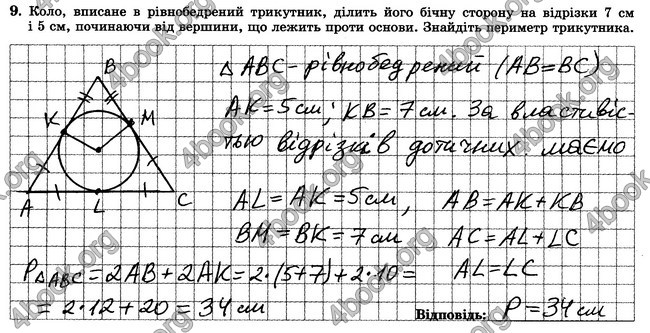 9. Коло, вписане в рівнобедрений трикутник, ділить його бічну сторону на відрізки 7 см
і 5 см, починаючи від вершини, що лежить проти основи. Знайдіть периметр трикутника.
B
K
M
A
L
C
Δ ABC - рівнобедрений (AB=BC)
AK=5см; KB=7см. За властивіс-
тью відрізків дотичних маємо
AL = AK = 5см, AB = AK + KB
BM = BK = 7см AC = AL + LC
P△ABC = 2AB + 2AK = 2·(5+7) + 2·10 = AL = LC
= 2·12 + 20 = 34 см
Відповідь: P = 34 см
4book.org